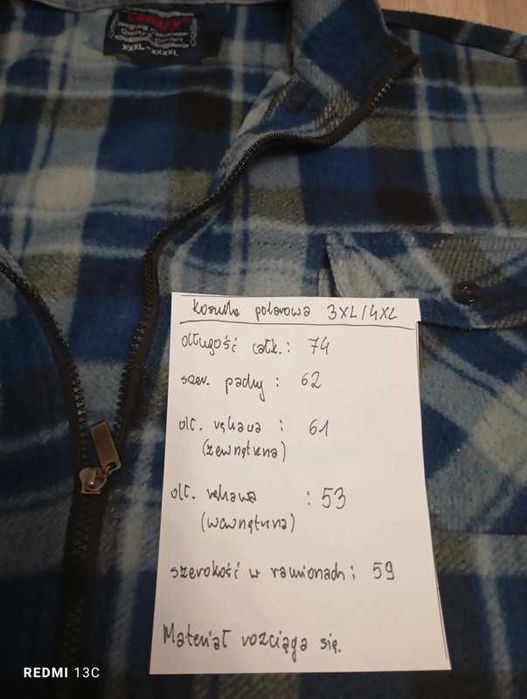 Canary
XXXL-XXXXL
Koszula polarowa 3XL/4XL
długość całk.: 74
szer. pachy : 62
dł. rękawa : 61
(zewnętrzna)
dł. rękawa : 53
(wewnętrzna)
szerokość w ramionach: 59
Materiał rozciąga się.
REDMI 13C